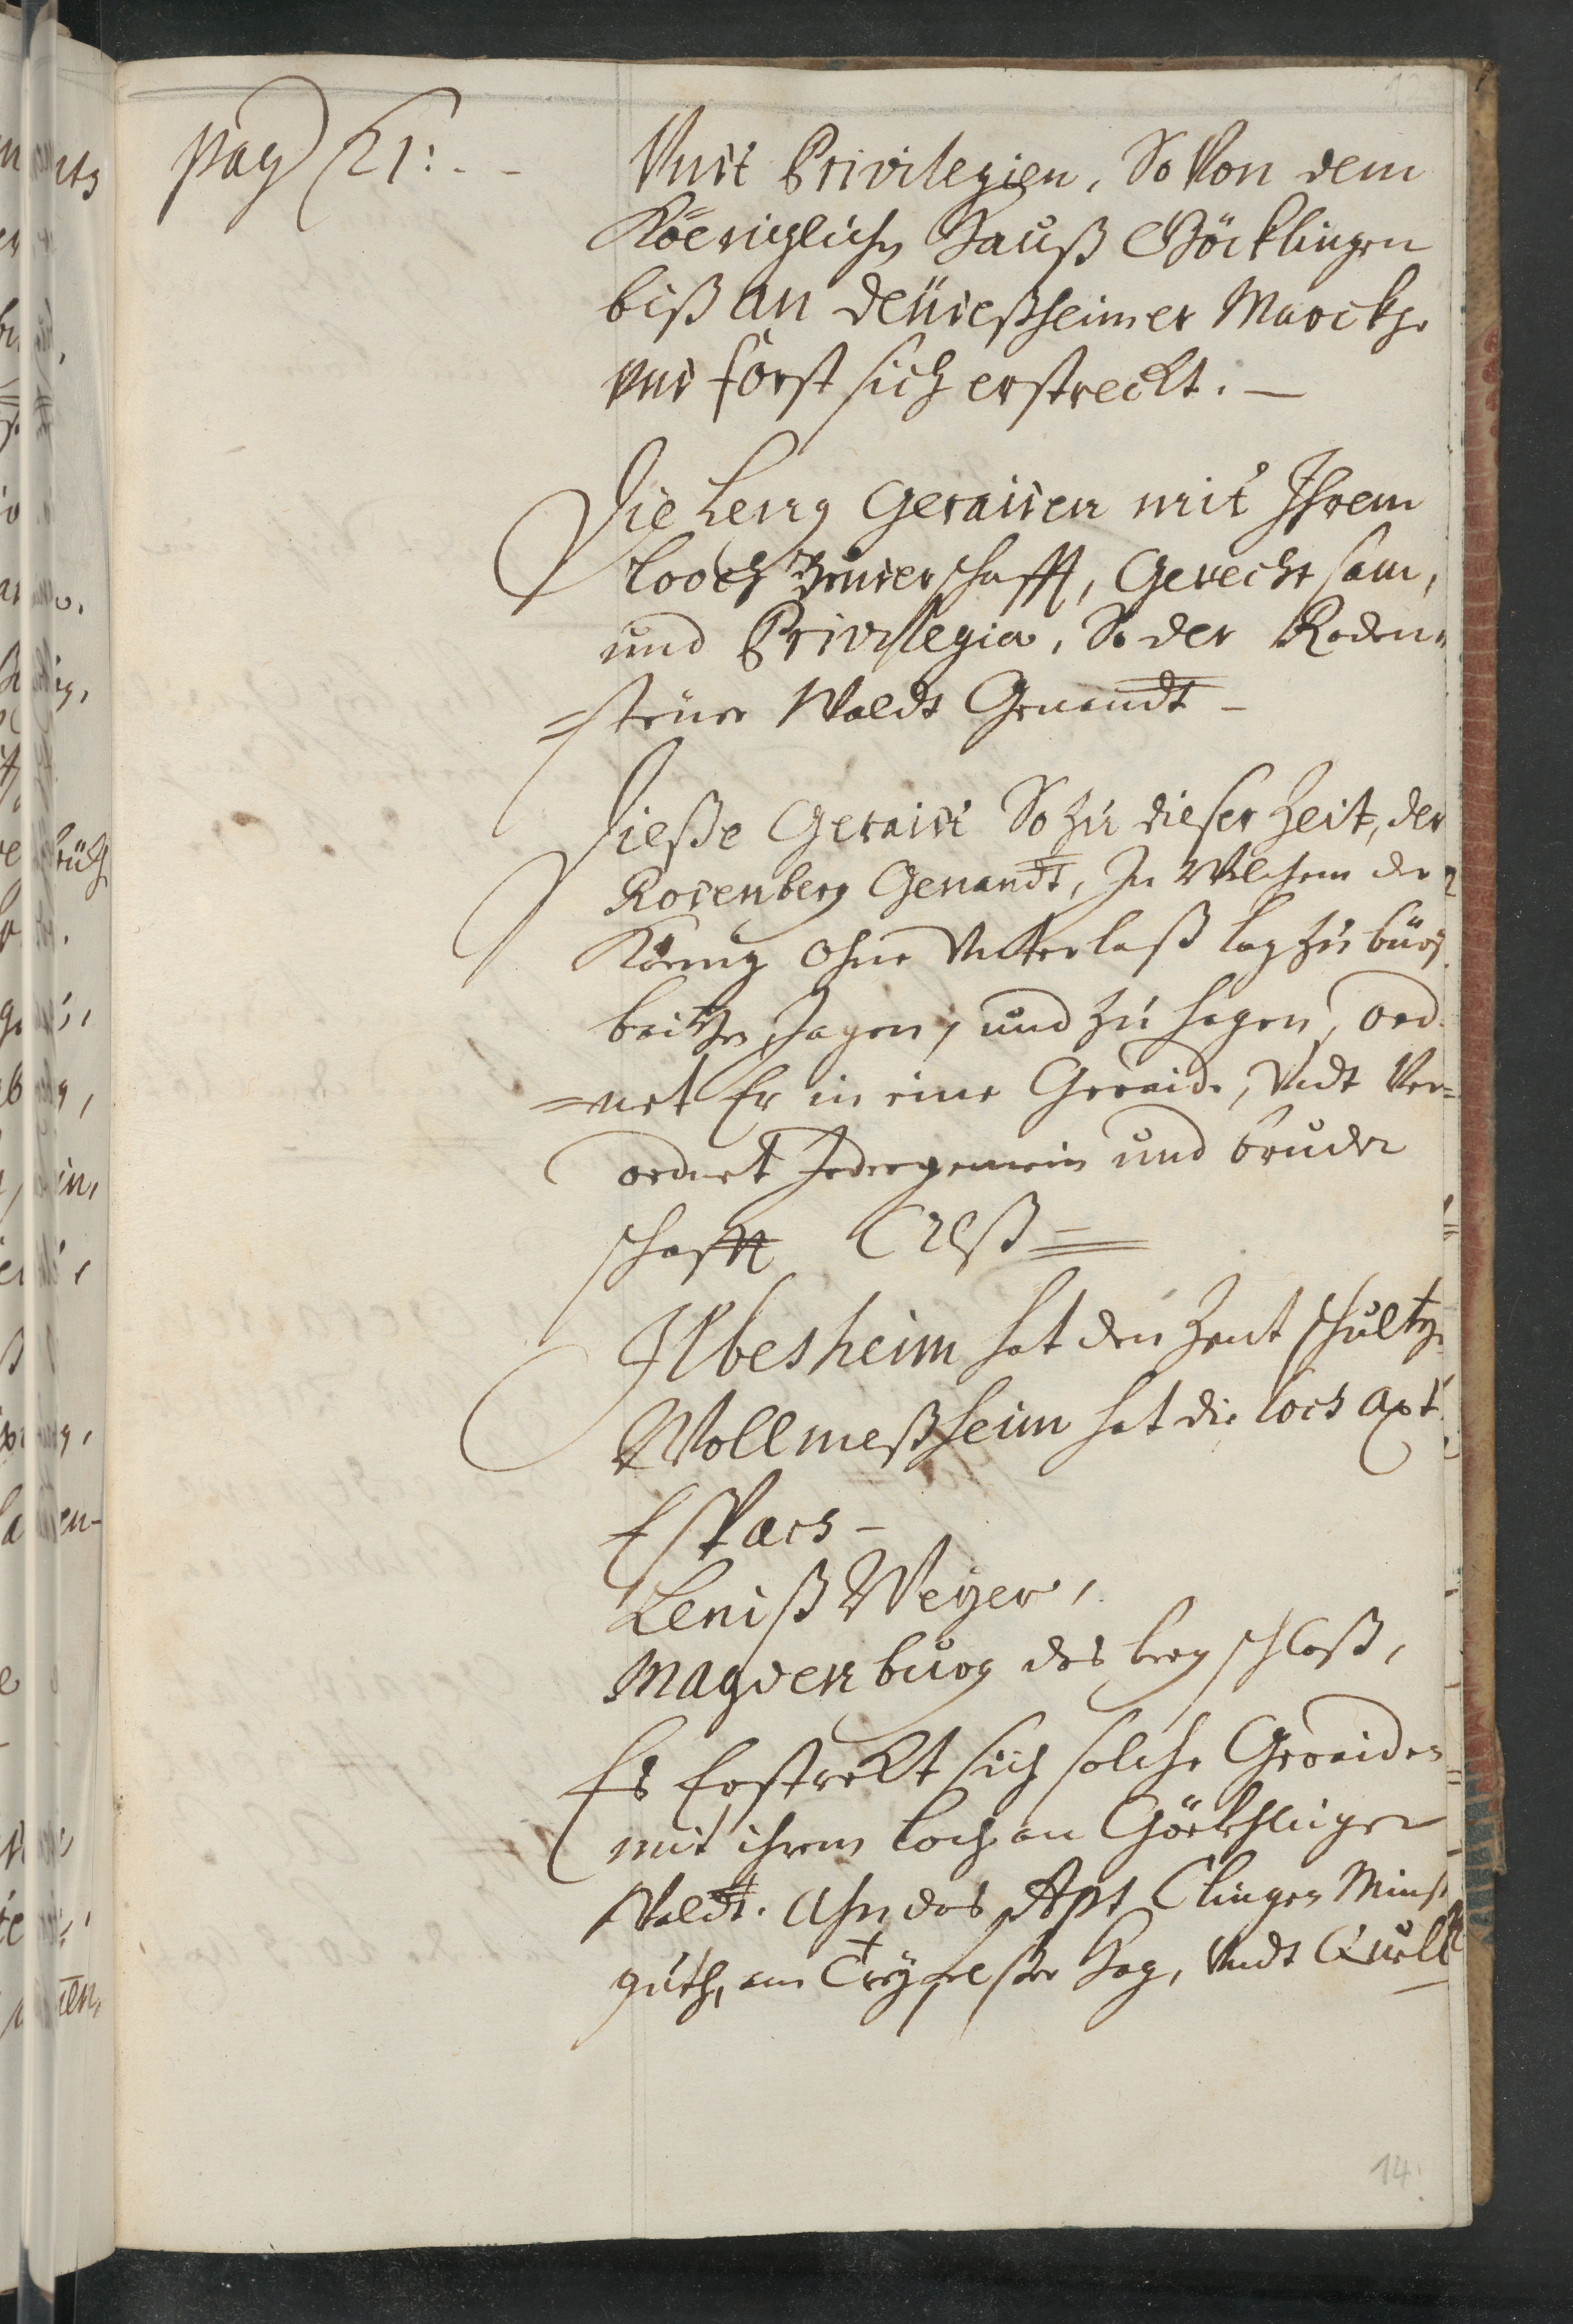 pag 21: - -
Vndt Privilegien, So Von dem
Köeniglichen Hauß Göcklingen
biß an deüdeßheimer Marckh
vnd forst sich erstreckt. —
Die berg Geraiden mit Ihrem
looch Bruderschafft, Gerechtsam,
und Privilegia, So der Roden=
=steiner Waldt Genandt -
Dieße Geraidt So zu dieser Zeit, der
Rodenberg Genandt, In Welchem der
König ohne Vnterlaß lag zu bürs
beitzen Jagen, und zu hagen, ord=
=net Er in eine Geraide, Vndt Ver=
ordnet Jeder gemein und bruder
schafft
Ilbesheim hat den Zent schultz
Wollmeßheim hat die loch axt
Eschbach -
Leinß Weyer,
Magdenburg das berg schloß,
Es Erstreckt sich solche Geraiden
mit ihrem loch an Göcklinger
Waldt. Ahn das Apt Clingen Münst
guth, am Tryfelßer Hag, Vndt
14.